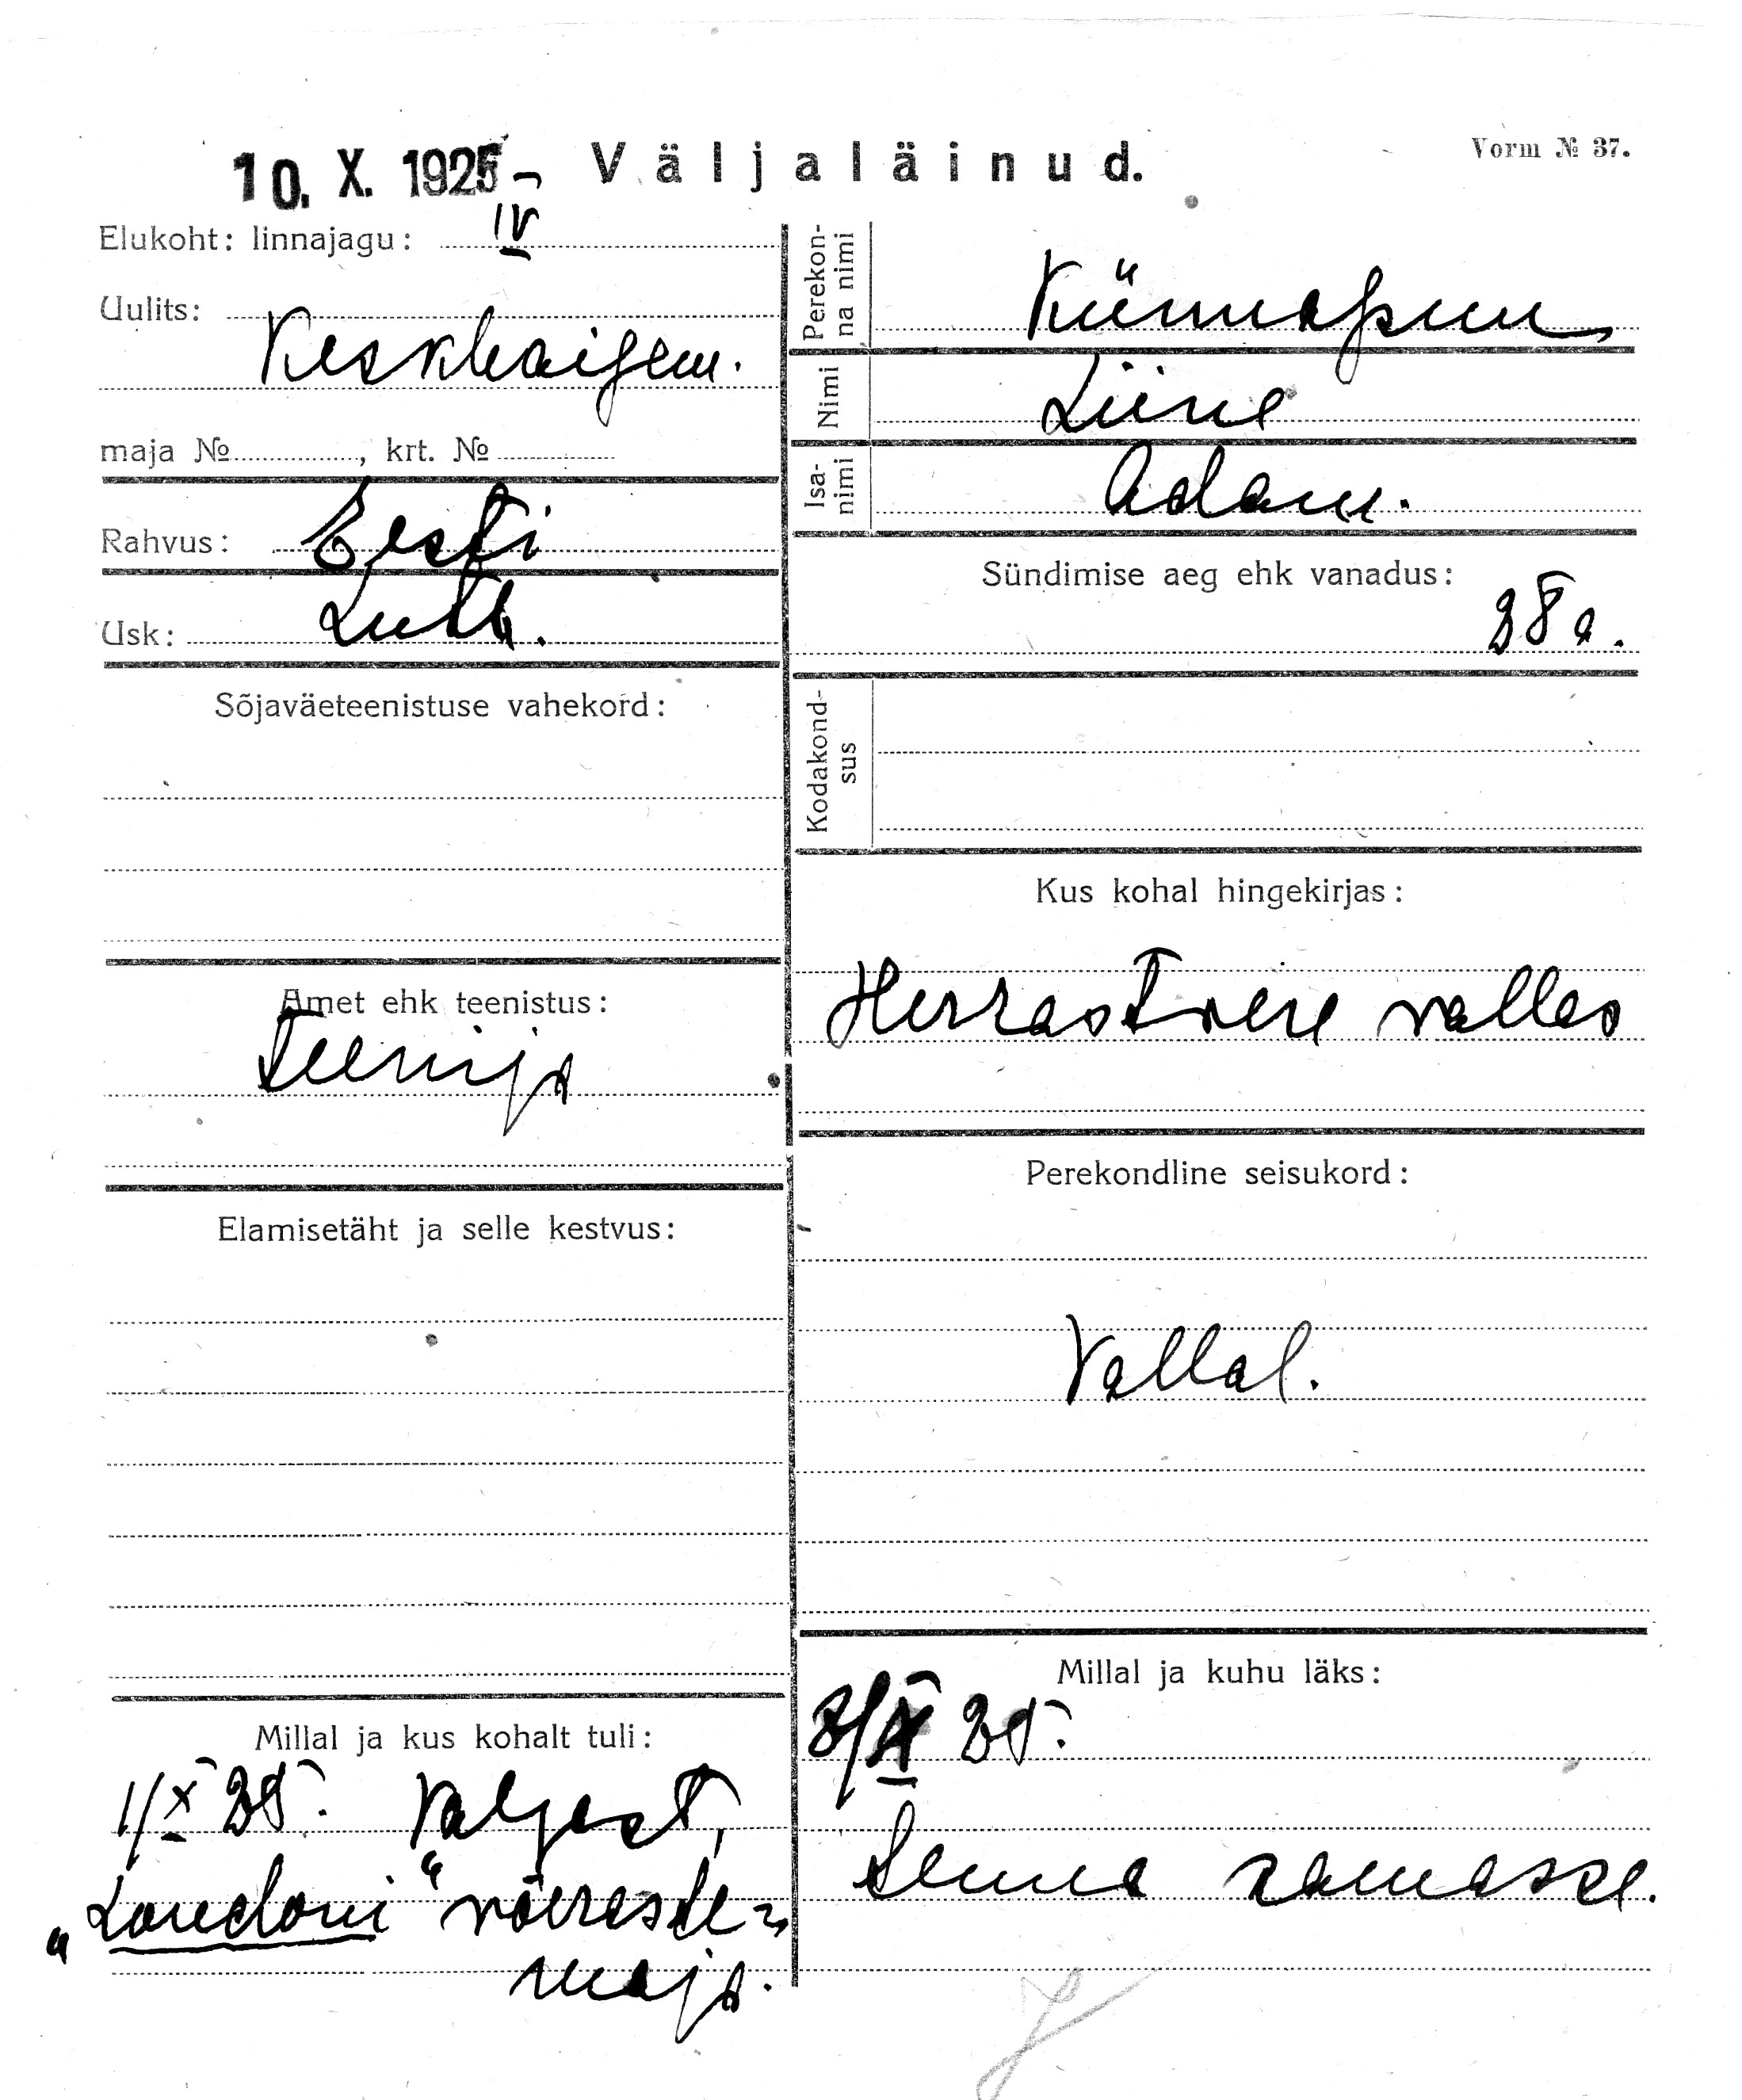 10. X. 1925 - Väljaläinud.
Vorm № 37.
Elukoht: linnajagu: IV
Uulits:
Keskhaigem.
maja № , krt. №
Rahvus: Eesti
Usk: Luth.
Sõjaväeteenistuse vahekord:
Amet ehk teenistus:
Teenija
Elamisetäht ja selle kestvus:
Millal ja kus kohalt tuli:
1/X 25. Valgast,
„Londoni“ võeraste-
maja.
Perekon-
na nimi
Künnapuu
Nimi
Liine
Isa-
nimi
Adam.
Sündimise aeg ehk vanadus:
38 a.
Kodakond-
sus
Kus kohal hingekirjas:
Herrastvere vallas
Perekondline seisukord:
Vallal.
Millal ja kuhu läks:
8/X 25.
Senna samasse.